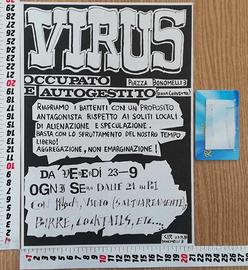 VIRUS
OCCUPATO PIAZZA BONOMELLI 3
E AUTOGESTITO
RIAPRIAMO I BATTENTI CON UN PROPOSITO
ANTAGONISTA RISPETTO AI SOLITI LOCALI
DI ALIENAZIONE E SPECULAZIONE.
BASTA CON LO SFRUTTAMENTO DEL NOSTRO TEMPO
LIBERO!
AGGREGAZIONE, NON EMARGINAZIONE!
DA VENERDÌ 23-9
OGNI SERA DALLE 21 IN POI
CON MUSICA, VIDEO (SALTUARIAMENTE),
BIRRE, COCKTAILS, ETC...
BONOMELLI 3